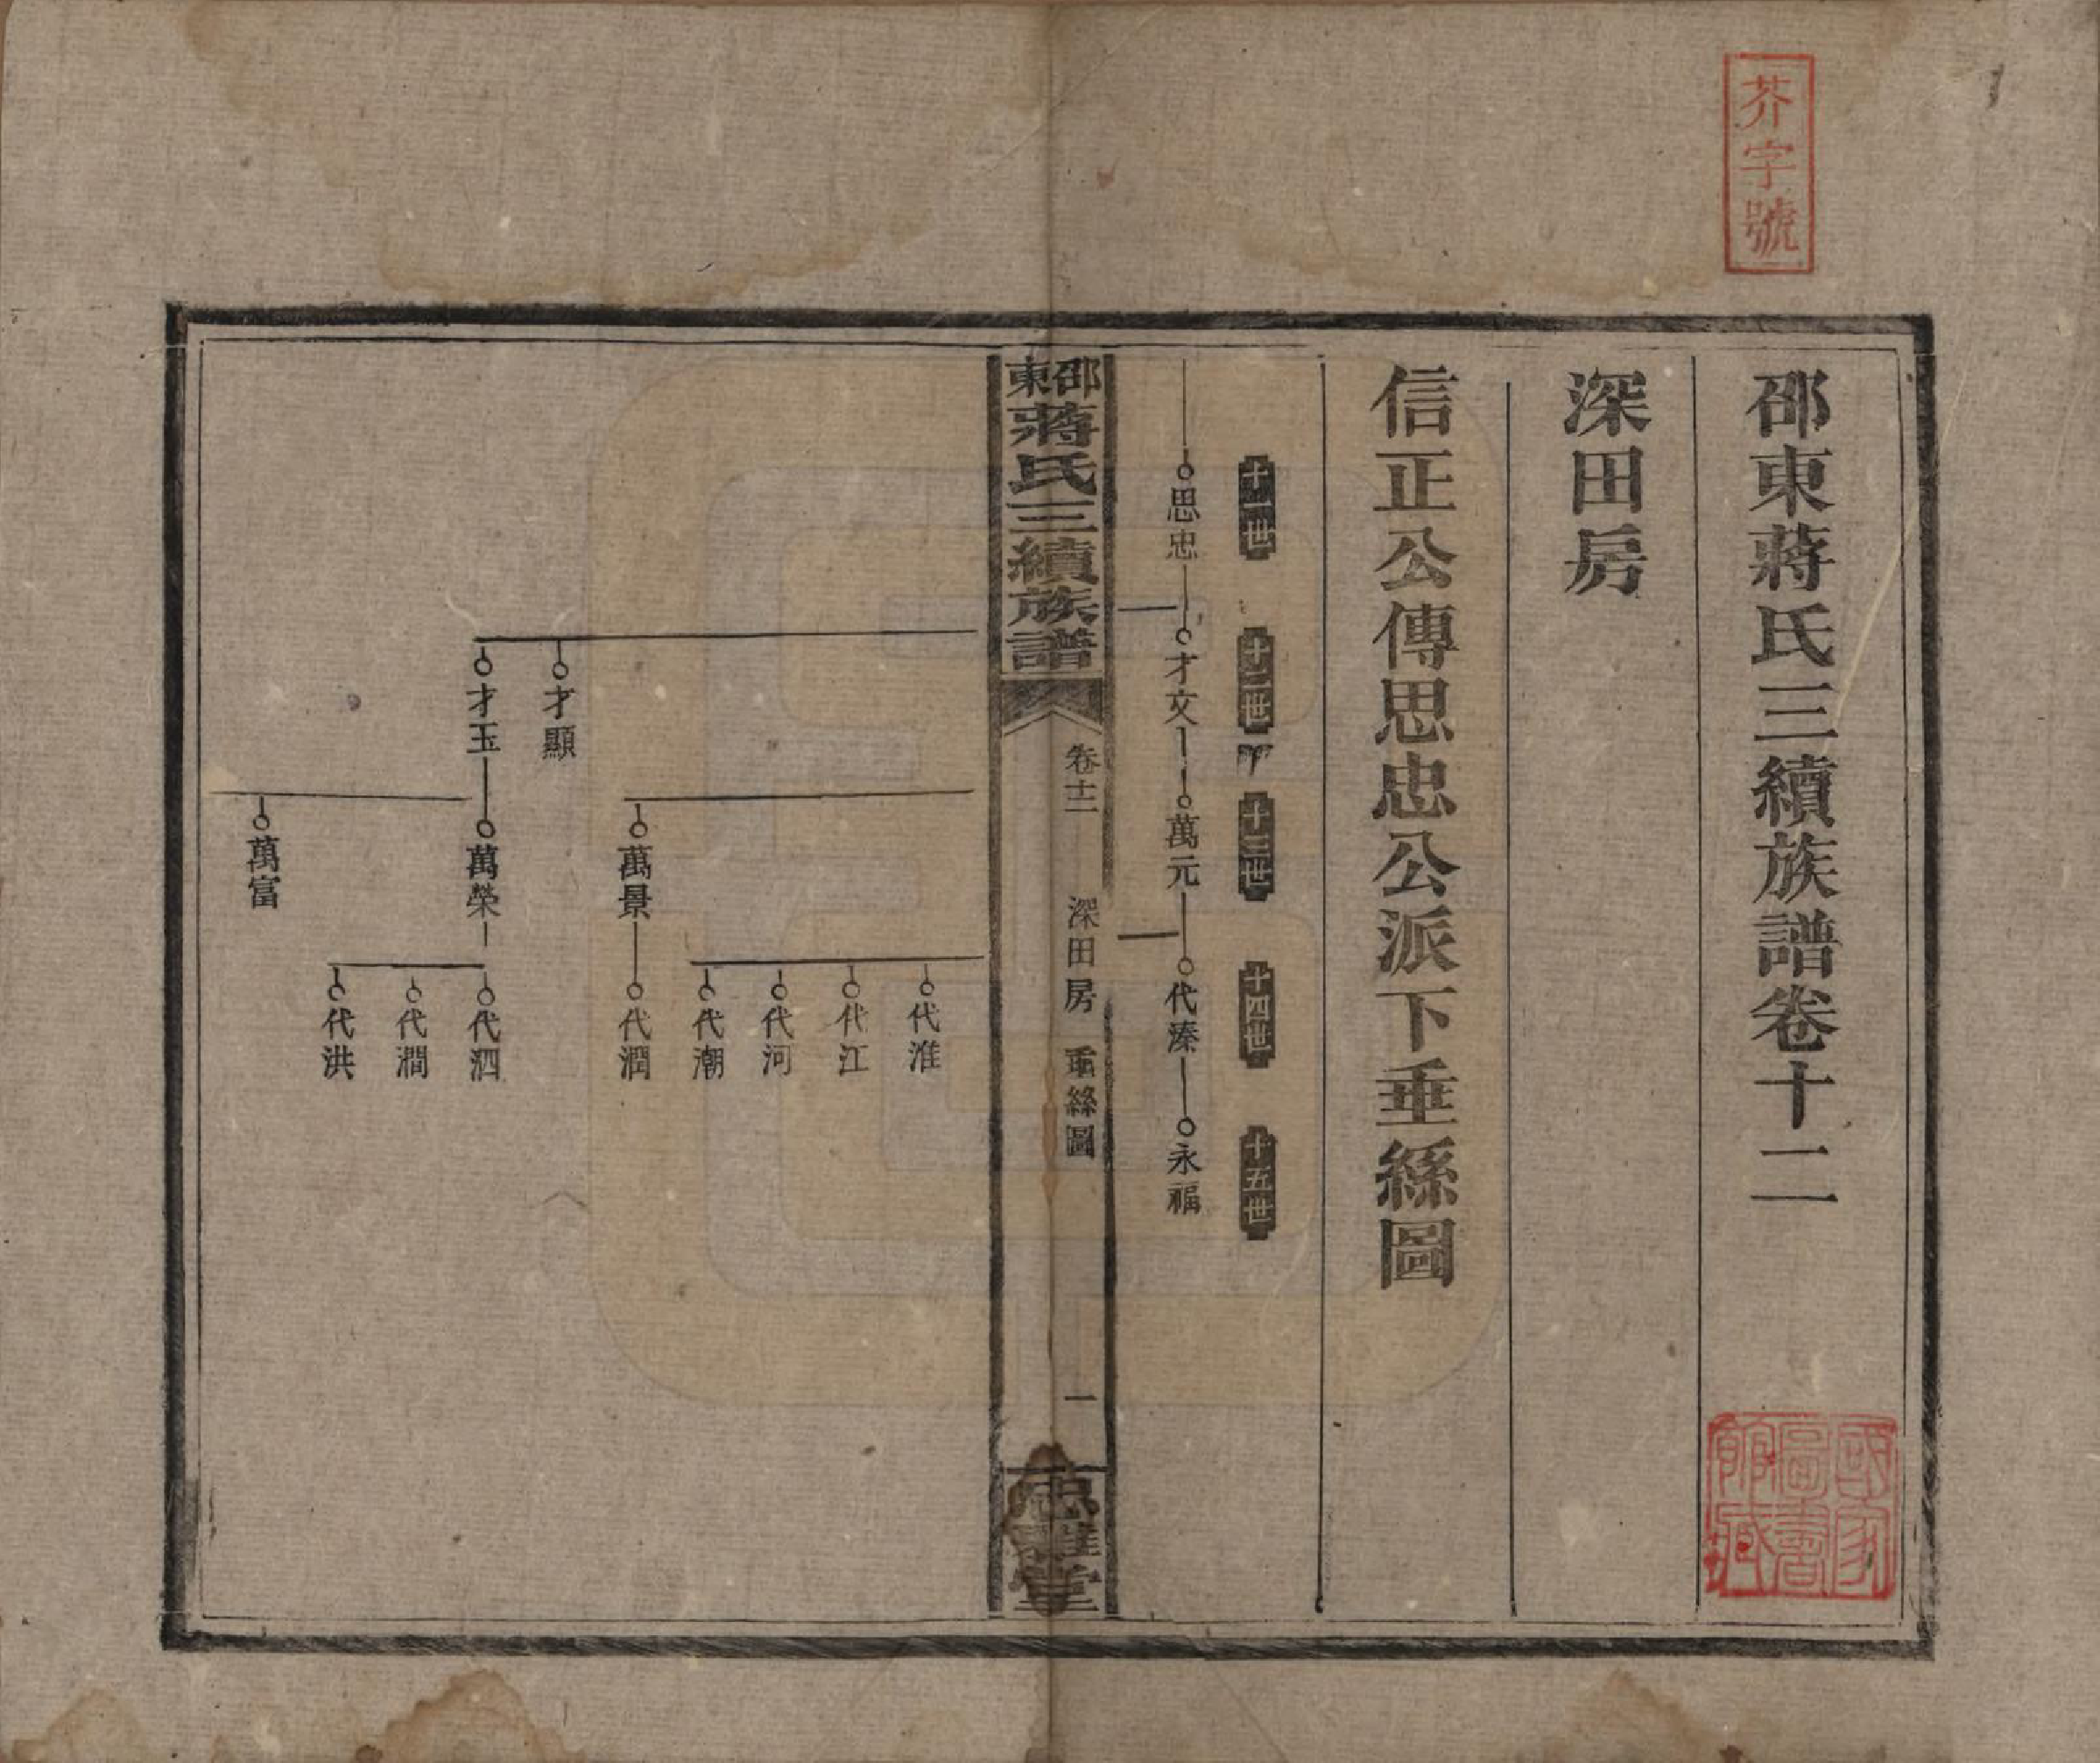 芥字號
邵東蔣氏三續族譜卷十二
國家圖書館藏
深田房
信正公傳思忠公派下垂絲圖
十一世 十二世 十三世 十四世 十五世
思忠 才文 萬元 代溱 永福
邵東蔣氏三續族譜 卷十二 深田房 垂絲圖 一 忠雅堂
代淮
代江
代河
代潮
萬景 代潤
才顯
才玉 萬榮 代泗
代澗
代洪
萬富